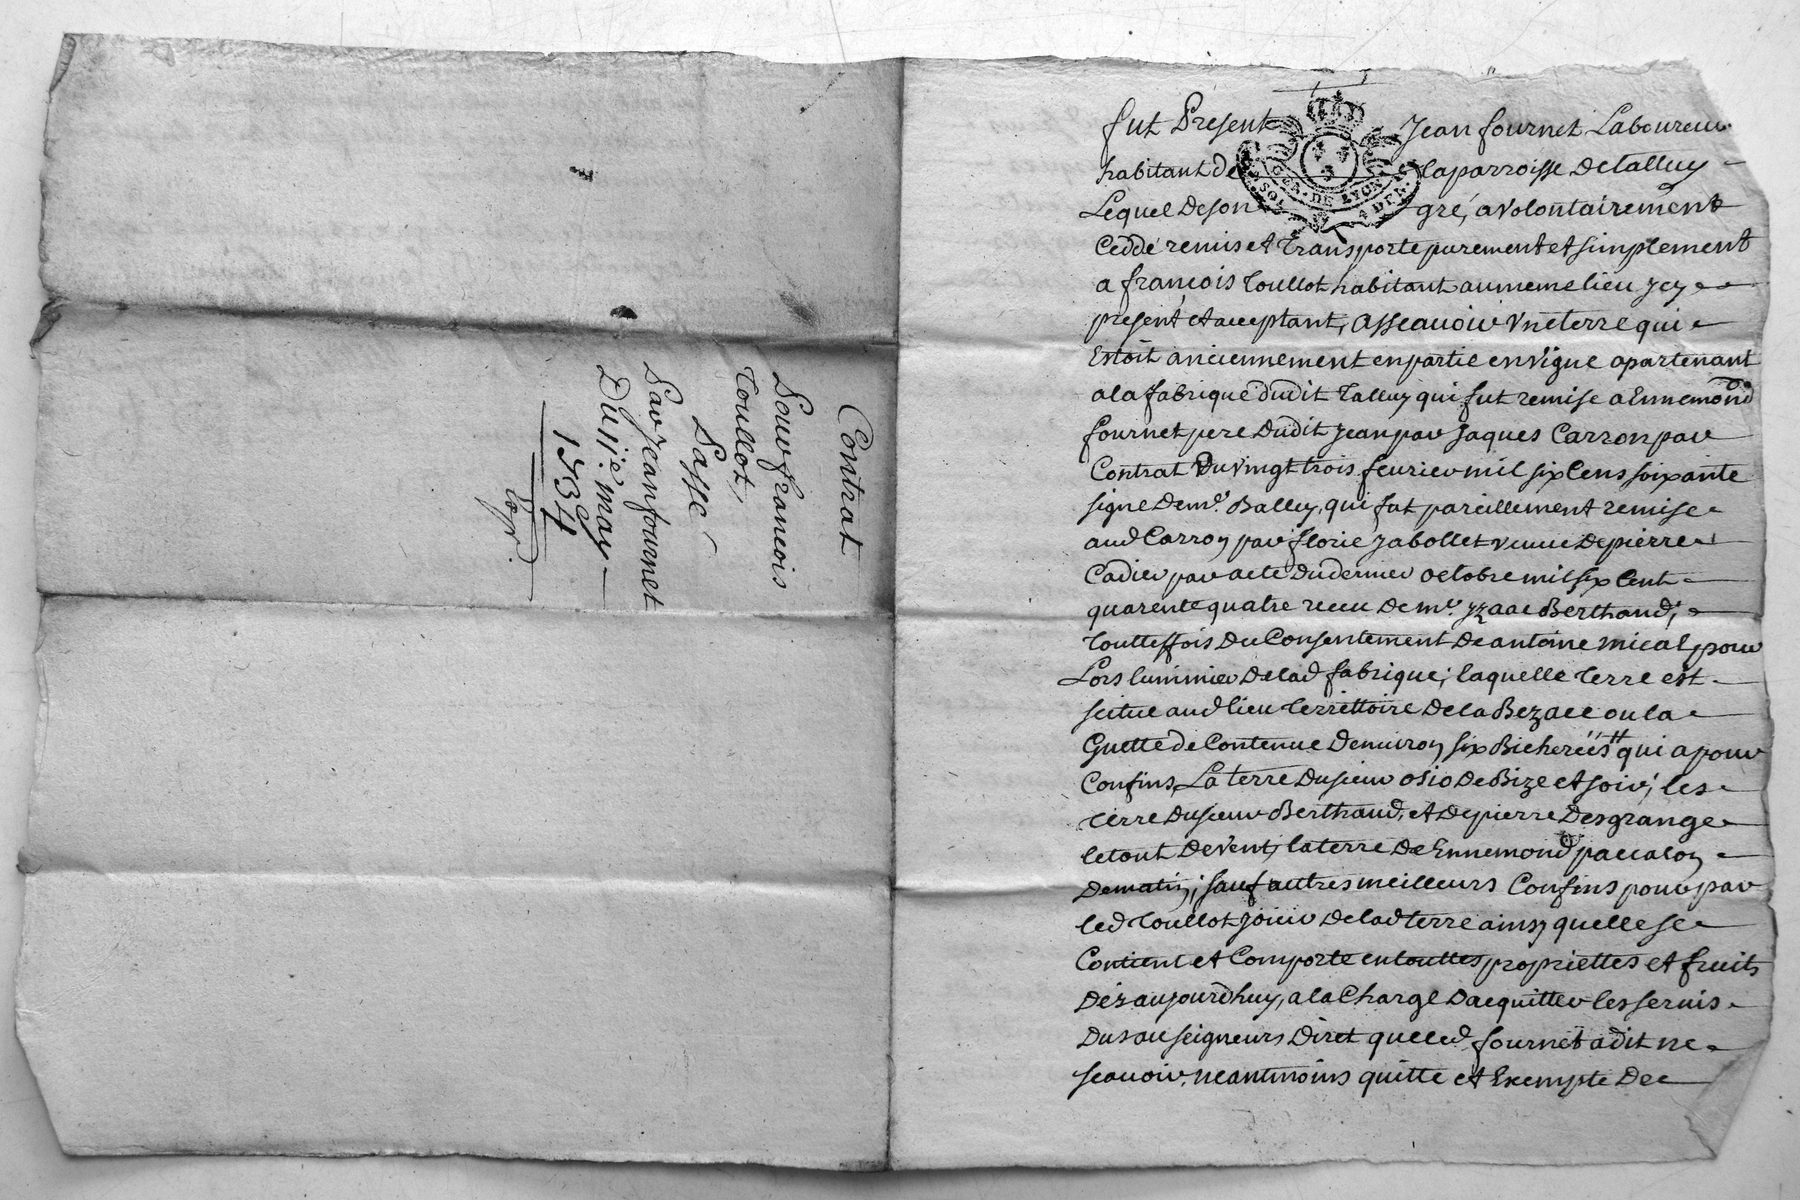 Contrat
Pour francois
Toullot,
Passé
Par Jean fournet
Du 11e. may
1734
fut Present Jean fournet Laboureur
habitant de laparroisse Detalluy
Lequel Deson gré, a volontairement
Ceddé remis et Transporte purement et simplement
a francois Toullot habitant aumeme lieu Jcy
present et acceptant, asseauoir Vne terre qui
Estoit anciennement enpartie en Vigne apartenant
ala fabrique dudit Talluy qui fut remise a Ennemond
fournet pere Dudit Jean par Jaques Carron par
Contrat Du Vingt trois feurier mil six Cens soixante
signe Deme. Balley, qui fut pareillement remise
aud Carron par florie Jabollet veuue Depierre
Cadier par acte Dudernier octobre mil six Cent
quarente quatre receu De me. yzaac Berthaud,
Touteffois Du Consentement De antoine mical, pour
Lors luminier Delad fabrique; laquelle Terre est
scitue aud lieu Territtoire De la Bezace ou la
Guette de Contenue Denuiron six Bicherées qui a pour
Confins, La terre Dusieur osio De Bize et soir, les
Terre Dusieur Berthaud, et De pierre Desgrange
letout De Vent, la terre De Ennemond paccalon
De matin; sauf autres meilleurs Confins pour par
led Toullot Joüir Delad terre ainsy quelle se
Contient et Comporte en touttes propriettes et fruits
Dèz aujourdhuy, a la Charge Dacquitter les seruis
Dus au seigneurs Diret que led fournet a dit ne
scauoir, neantmoins quitte et Exempte De
GEN. DE LYON
SOL
4 DEN.